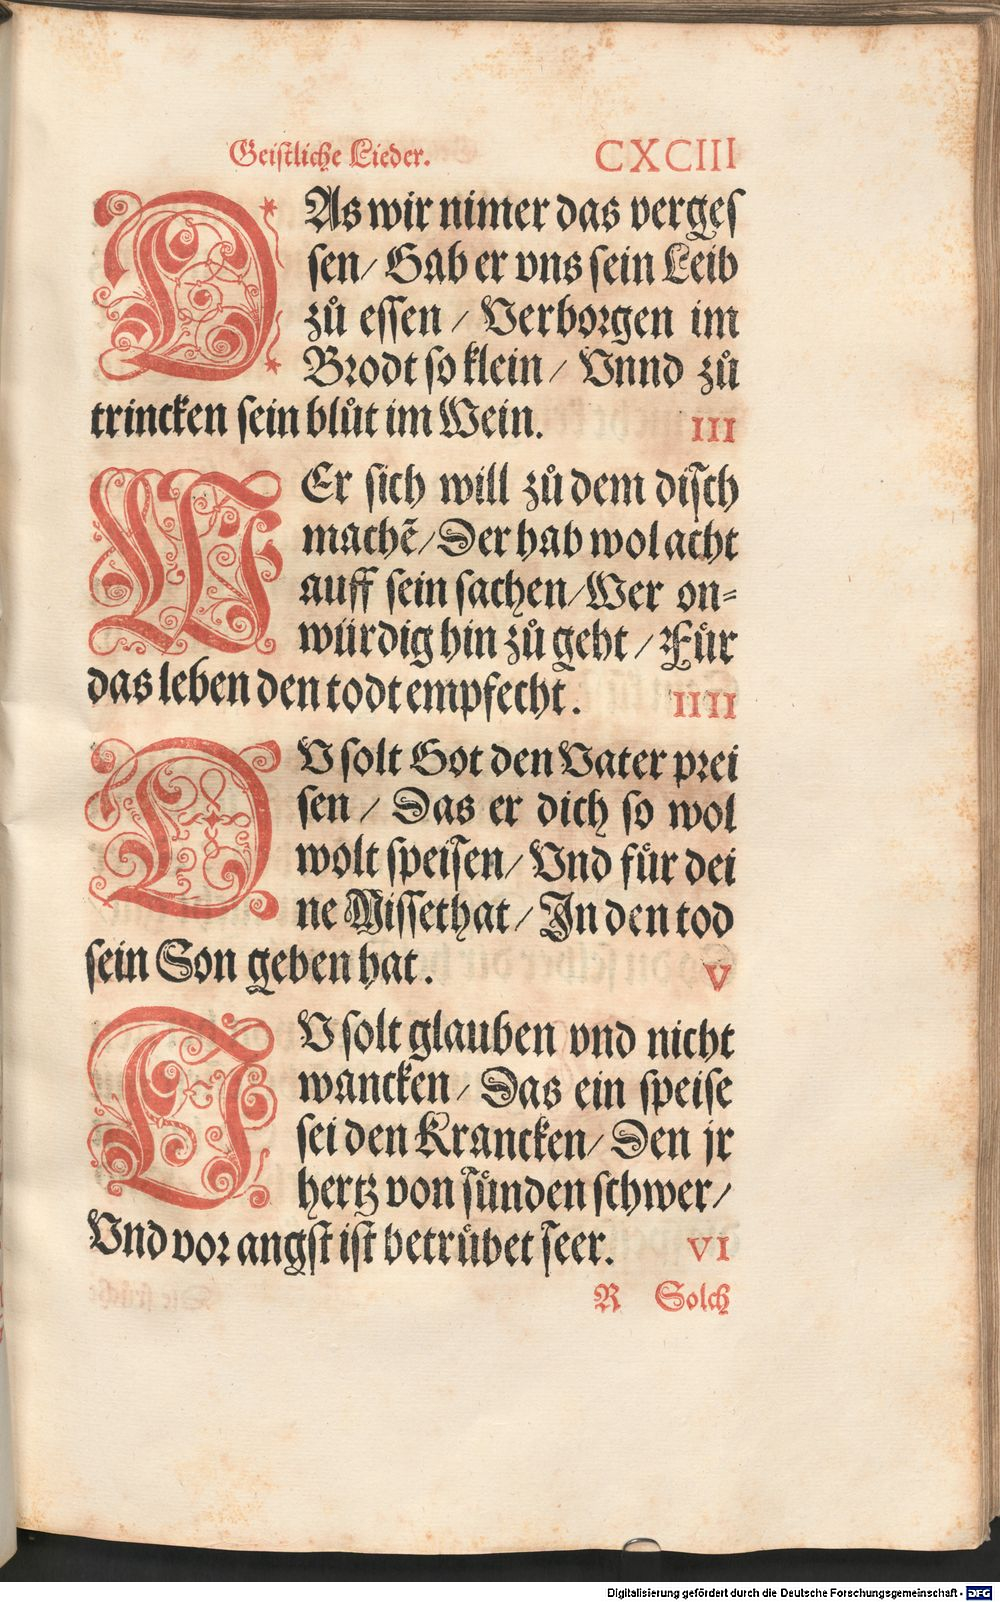 Geiſtliche Lieder. CXCIII
DAs wir nimer das vergeſ
ſen/ Gab er vns ſein Leib
zů eſſen / Verborgen im
Brodt ſo klein / Vnnd zů
trincken ſein blůt im Wein. III
WEr ſich will zů dem diſch
machẽ/ Der hab wol acht
auff ſein ſachen/ Wer on⸗
würdig hin zů geht / Für
das leben den todt empfecht. IIII
DV ſolt Got den Vater prei
ſen / Das er dich ſo wol
wolt ſpeiſen/ Vnd für dei
ne Miſſethat / In den tod
ſein Son geben hat. V
DV ſolt glauben vnd nicht
wancken/ Das ein ſpeiſe
ſei den Krancken/ Den jr
hertz von ſünden ſchwer/
Vnd vor angſt iſt betrübet ſeer. VI
R Solch
Digitalisierung gefördert durch die Deutsche Forschungsgemeinschaft - DFG